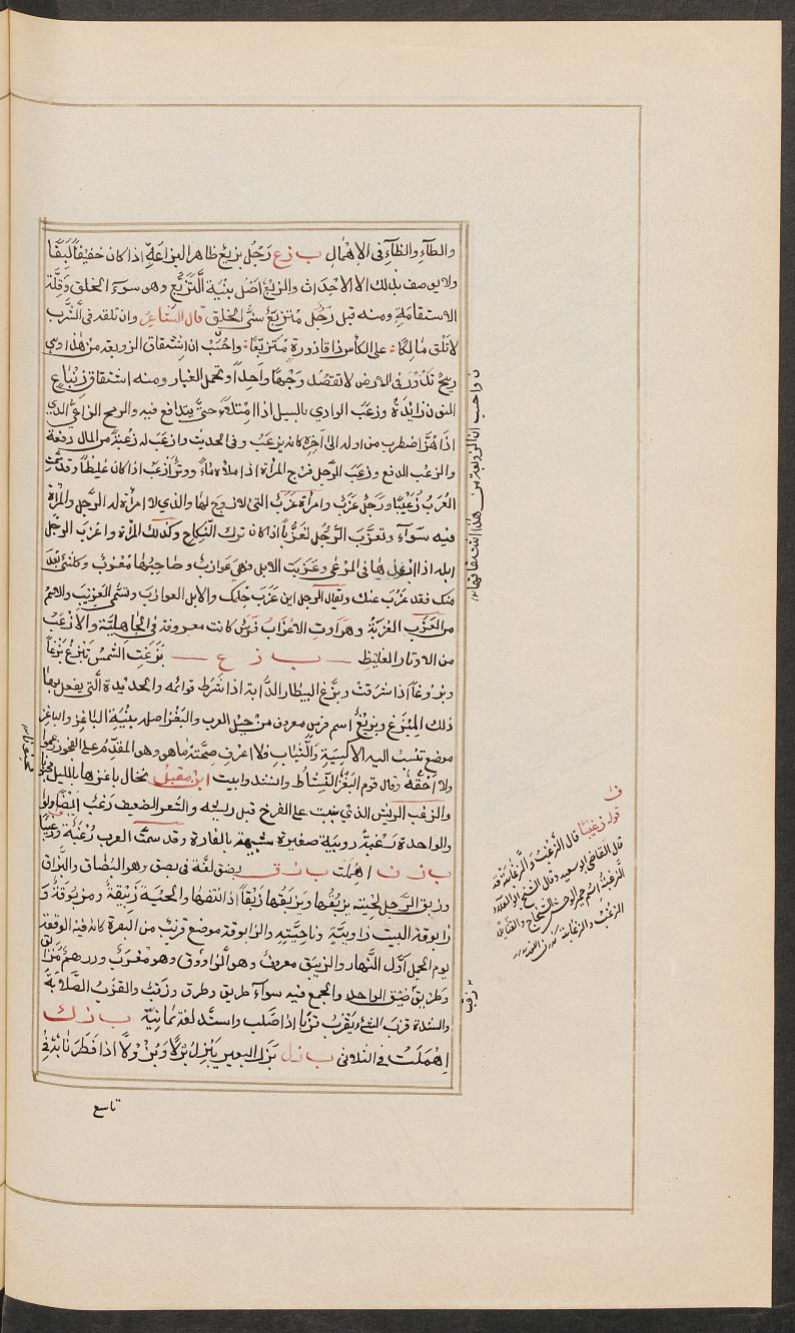 والطاء والظاء فى الاهمال ب زع رَجُل بزيع ظاهر البزاعة اذا كان خفيفًا لَبِقًا
ولا يوصف بذلك الا الاحداث والزبع اصل بنية التَّزَبُّع وهو سوء الخلق وقِلّة
الاستقامة ومنه قيل رَجُل متزبع سىّ الخلق قال الشاعر وان تلقه فى الشَّرب
لا تلق مالكًا على الكاس ذا قاذورة متزبعًا واحسب ان اشتقاق الزوبعه من هذا وهى
ريح تدور فى الارض لا تقصد وَجهًا واحدًا وتحمل الغبار ومنه اشتقاق زنباع
النون زائدة وزعَب الوادى بالسيل اذا امتلأ حتى يتدافع فيه والرمح الزاعبى الذى
اذا هُزّ اضطرب من اوله الى آخره كانه يزعَب وفى الحديث وازعَب له زعبة من المال دفعة
والزعب الدفع وزعَب الرَّجل فرج المرأة اذا ملأه ماءً ووتر ازعَب اذا كان غليظًا وقد سمّت
العَرَبُ زعيبًا ورَجل عَزَب وامرأة عَزَب التى لا زوج لها والذى لا امرأة له الرّجل والمرأة
فيه سَواء وتعزّب الرَّجُل تعَزُّبًا اذا كان ترك النكاح وكذلك المرأة واعزب الرجل
ابله اذا ابعَد بها فى المرعى وعَزبَت الابل فهى عَوازب وصاحبها معزب وكل شئ بعد
منك فقد عَزَب عنك ويقال لرجل اين عَزَب حِلمك والابل العوازب وتسمى العزيب والاسم
من العَزَب العُزبَةُ وهراوت الاعزاب فرس كانت معروفة فى الجَاهليّة والازعب
من الاوتار الغليظ ب ز غ بَزَغت الشمسُ تبزغ بَزغًا
وبُزوغًا اذا شرقت وبزّغ البيطار الدابة اذا شرَط قوائمه والحديدة التى يفعل بها
ذلك المِبزَغ وبزيغ اسم فرس معروف من خيل العرب والبَغز اصل بنيَة الباغز والباغز
موضع تنسب اليه الاكسية والثياب فلا اعرف صحّته ما هو وهو المقدّم على الفجور زعموا
ولا احقّه وقال قوم البَغزُ النشاط وانشدوا بيت ابن مقبل تخال باغزها بالليل مجنونا
والزغب الريش الذى ينبت على الفرخ قبل ريشه والشَعر الضعيف زغب ايضا
والواحدة زغبة دويبة صغيرة شبيهة بالفارة وقد سمت العرب زُغبة وزغيبًا
ب ز ف اهملت ب ز ق بصق لغة فى بصق وهو البُصاق والبُزاق
وزبق الرَّجل لحيته يزبقُها ويَزبِقها زبقًا اذا نتفها واللحية زبيقة ومزبوقة و
زابوقة البيت زاويتة وناحيته والزابوقة موضع قريب من البصرة كانت فيه الوقعة
يوم الجمل اوّل النّهار والزيبق معروف وهو الزاووق وهو معرّب ودرهم مُزابق
وطريق ضيق الواحد والجمع فيه سواء طريق وطرق وزقب والقزب الصّلابةُ
والشدة قزب الشئ يقزب قزبا اذا صَلب واشتد لغة يمانيّة ب ز ك
اهملت فى الثلاثى ب ز ل بزل البعير يَبزل بَزلًا وبُزولًا اذا فطَر نابه فى
تاسع
واحسب ان الزوبعة من هذا اشتقاقها
مجنونا
زقب
قوله زغيبًا قال الزغبُ والزغابة
قال القاضى ابو سعيد وقال الشيخ ابو العلاء